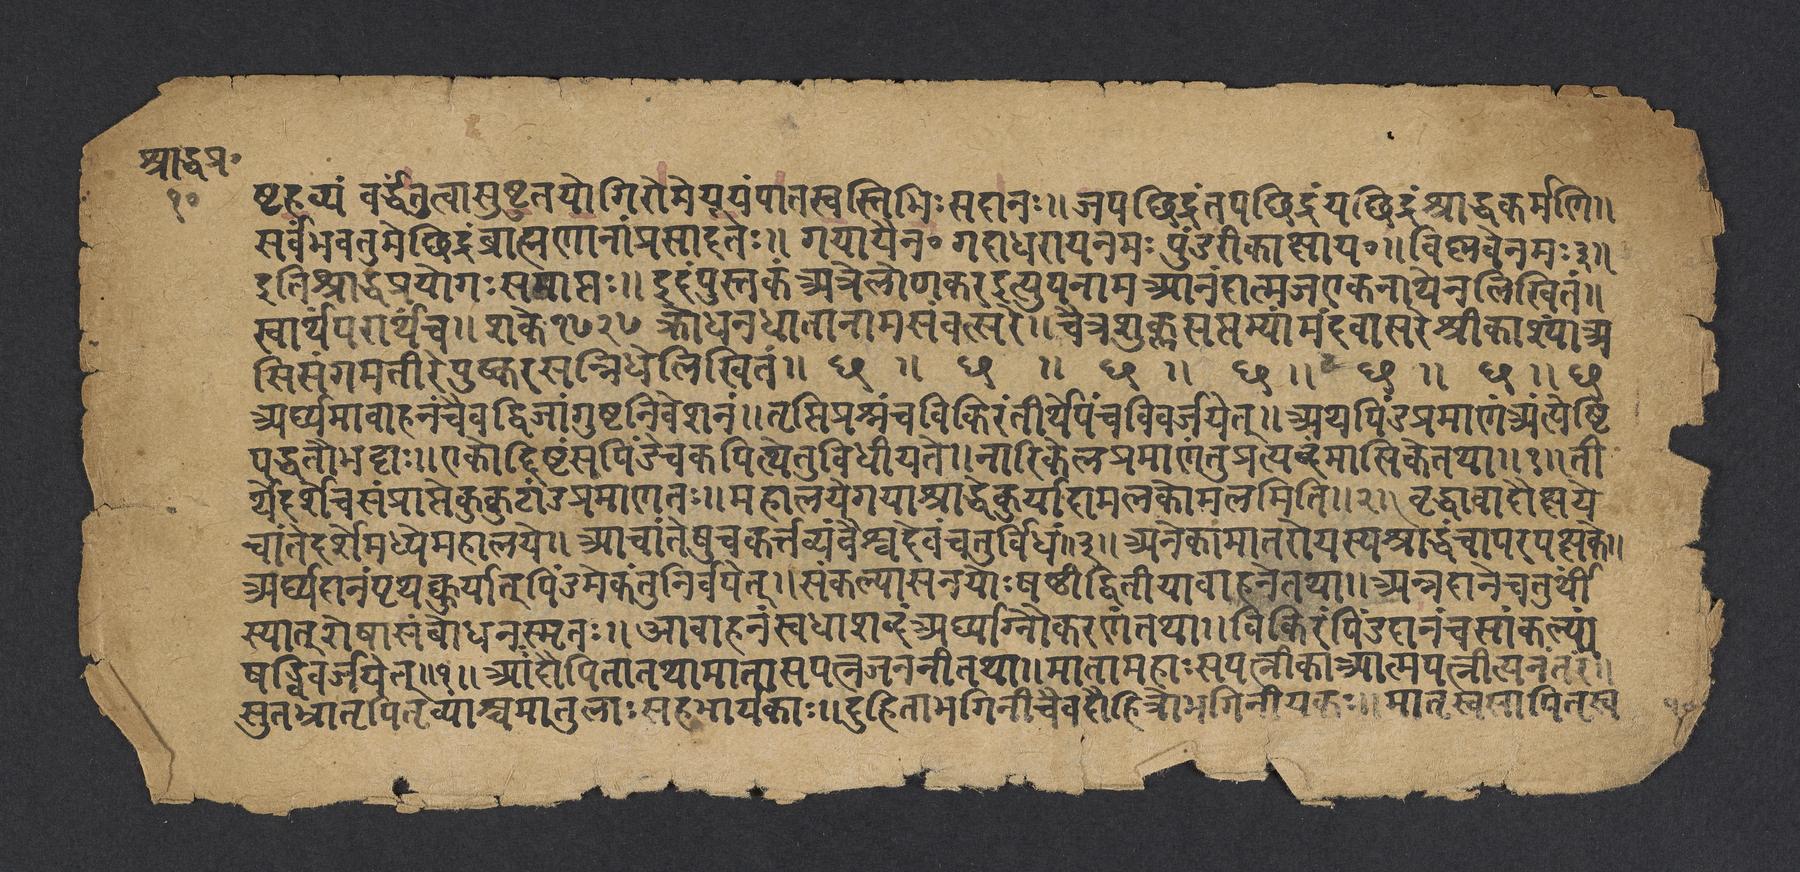 श्राद्धप्र॰
१०
ष्टहव्यं वर्द्धंतुत्वासुष्टुतयोगिरोमेयूयंपातस्वस्तिभिःसदानः॥ जपछिद्रंतपछिद्रंयछिद्रंश्राद्धकर्मणि॥
सर्वंभवतुमेछिद्रंब्राह्मणानांप्रसादतः॥ गयायैन॰ गदाधरायनमः पुंडरीकाक्षाय॰॥ विष्णवेनमः३॥
इतिश्राद्धप्रयोगःसमाप्तः॥ इदंपुस्तकंअत्रेलोणकरइत्युपनामआनंदात्मजएकनाथेनलिखितं॥
स्वार्थंपरार्थंच॥ शके१७२७ क्रोधनधातानामसंवत्सरे॥ चैत्रशुक्लसप्तम्यांमंदवासरेश्रीकाश्यांअ
सिसंगमतीरेपुष्करसन्निधेलिखितं॥ छ ॥ छ ॥ छ ॥ छ ॥ छ ॥ छ ॥ छ
अर्घ्यमावाहनंचैवद्विजांगुष्टनिवेशनं॥ तृप्तिप्रश्नंचविकिरंतीर्थेपिंचविवर्जयेत्॥ अथपिंडप्रमाणंअंत्येष्टि
पद्धतौभट्टाः॥ एकोद्दिष्टंसपिंडेचकपित्थंतुविधीयते॥ नारिकेलप्रमाणंतुप्रत्यब्दंमासिकेतथा॥१॥ ती
र्थेदर्शेचसंप्राप्तेकुकुटांडप्रमाणतः॥ महालयेगयाश्राद्धेकुर्यादामलकोमलमिति॥२॥ वृद्धावादौक्षये
चांतेदर्शेमध्येमहालये॥ आचांतेषुचकर्त्तव्यंवैश्वदेवंचतुर्विधं॥३॥ अनेकामातरोयस्यश्राद्धंचापरपक्षके॥
अर्घ्यदानंपृथक्कुर्यात्पिंडमेकंतुनिर्वपेत्॥ संकल्पासनयोःषष्ठीद्वितीयावाहनेतथा॥ अन्नदानेचतुर्थी
स्यात्शेषासंबोधनस्मृतः॥ आवाहनंस्वधाशब्दंअर्घ्याग्नौकरणंतथा॥ विकिरंपिंडदानंचसांकल्पां
षड्विवर्जयेत्॥१॥ आंदौपितातथामातासपत्नजननीतथा॥ मातामहाःसपत्नीकाआत्मपत्नीत्यनंतरं॥
सुतभ्रातृपितृव्याश्चमातुलाःसहभार्यकाः॥ दुहिताभगिनीचैवदौहित्रोभगिनीयकः॥ मातृस्वसापितृस्व
१०